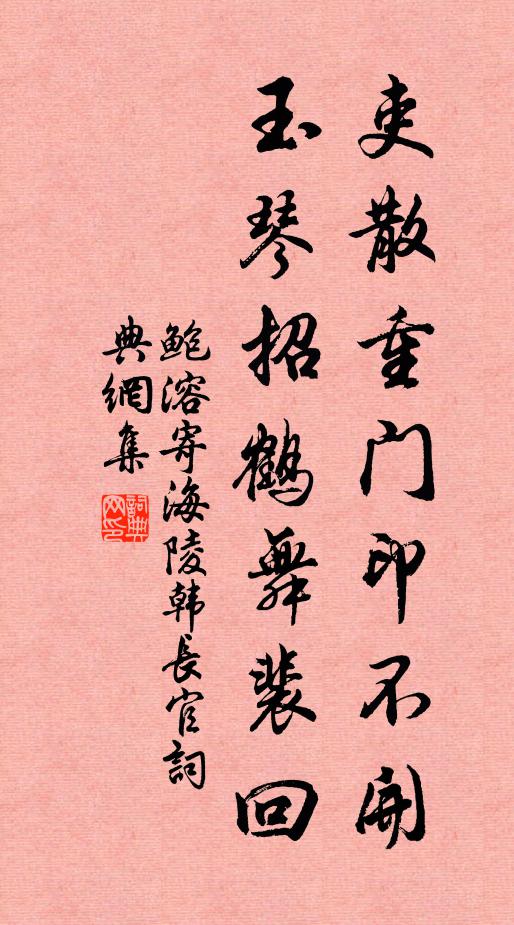 吏散重门印不開
玉琴招鶴舞裴回
鲍溶寄海陵韩長官詞
典網集
詞典网印